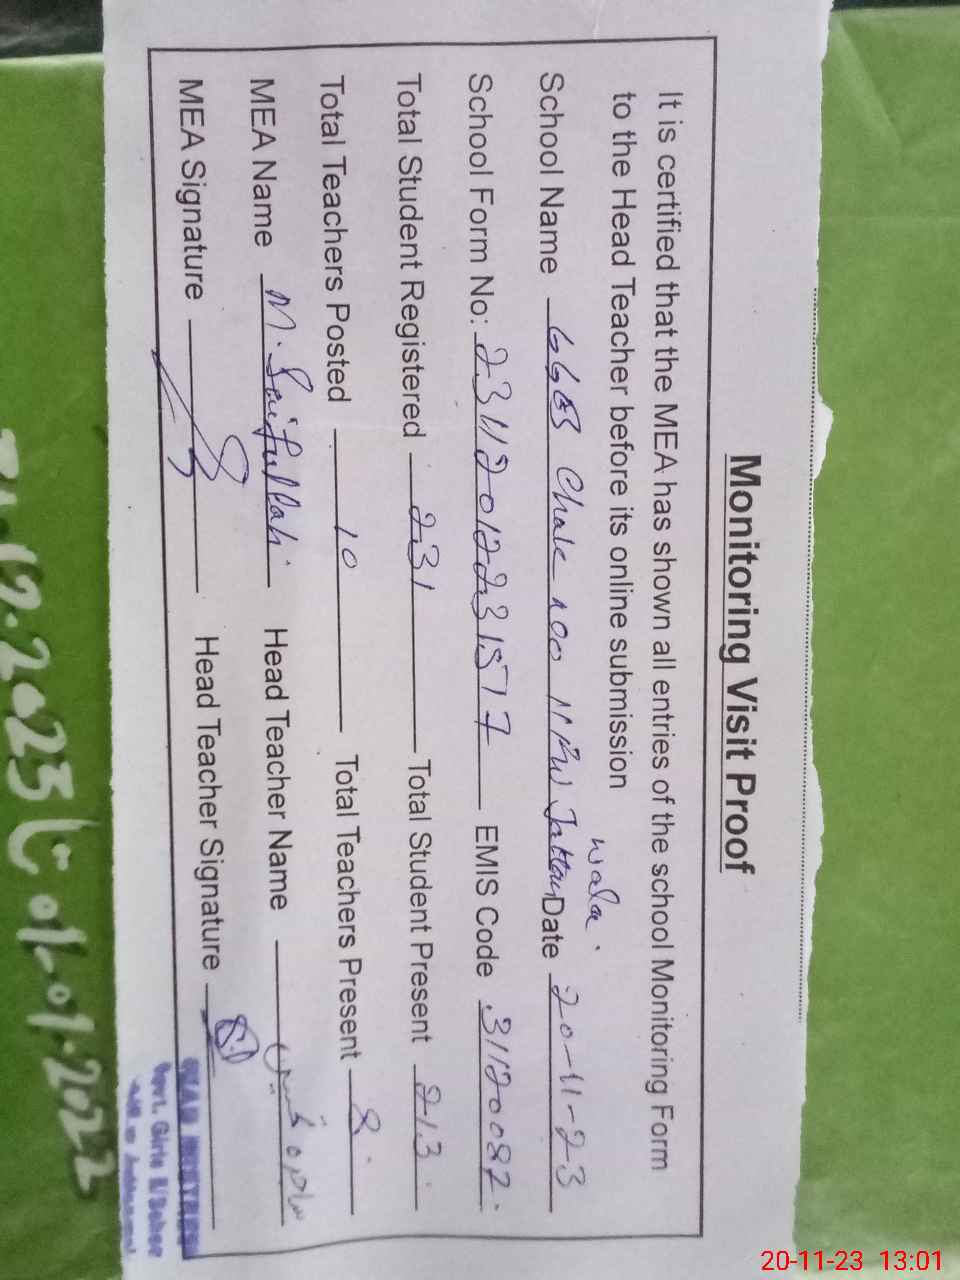 Monitoring Visit Proof
It is certified that the MEA has shown all entries of the school Monitoring Form
to the Head Teacher before its online submission
School Name Chak 100 Jattan wala Date 20-11-23
School Form No: 23112012231577 EMIS Code 31120082
Total Student Registered 231 Total Student Present 213
Total Teachers Posted 10 Total Teachers Present 8
MEA Name M. Saifullah Head Teacher Name
MEA Signature Head Teacher Signature
Govt. Girls
2023 01.01.2022
20-11-23 13:01